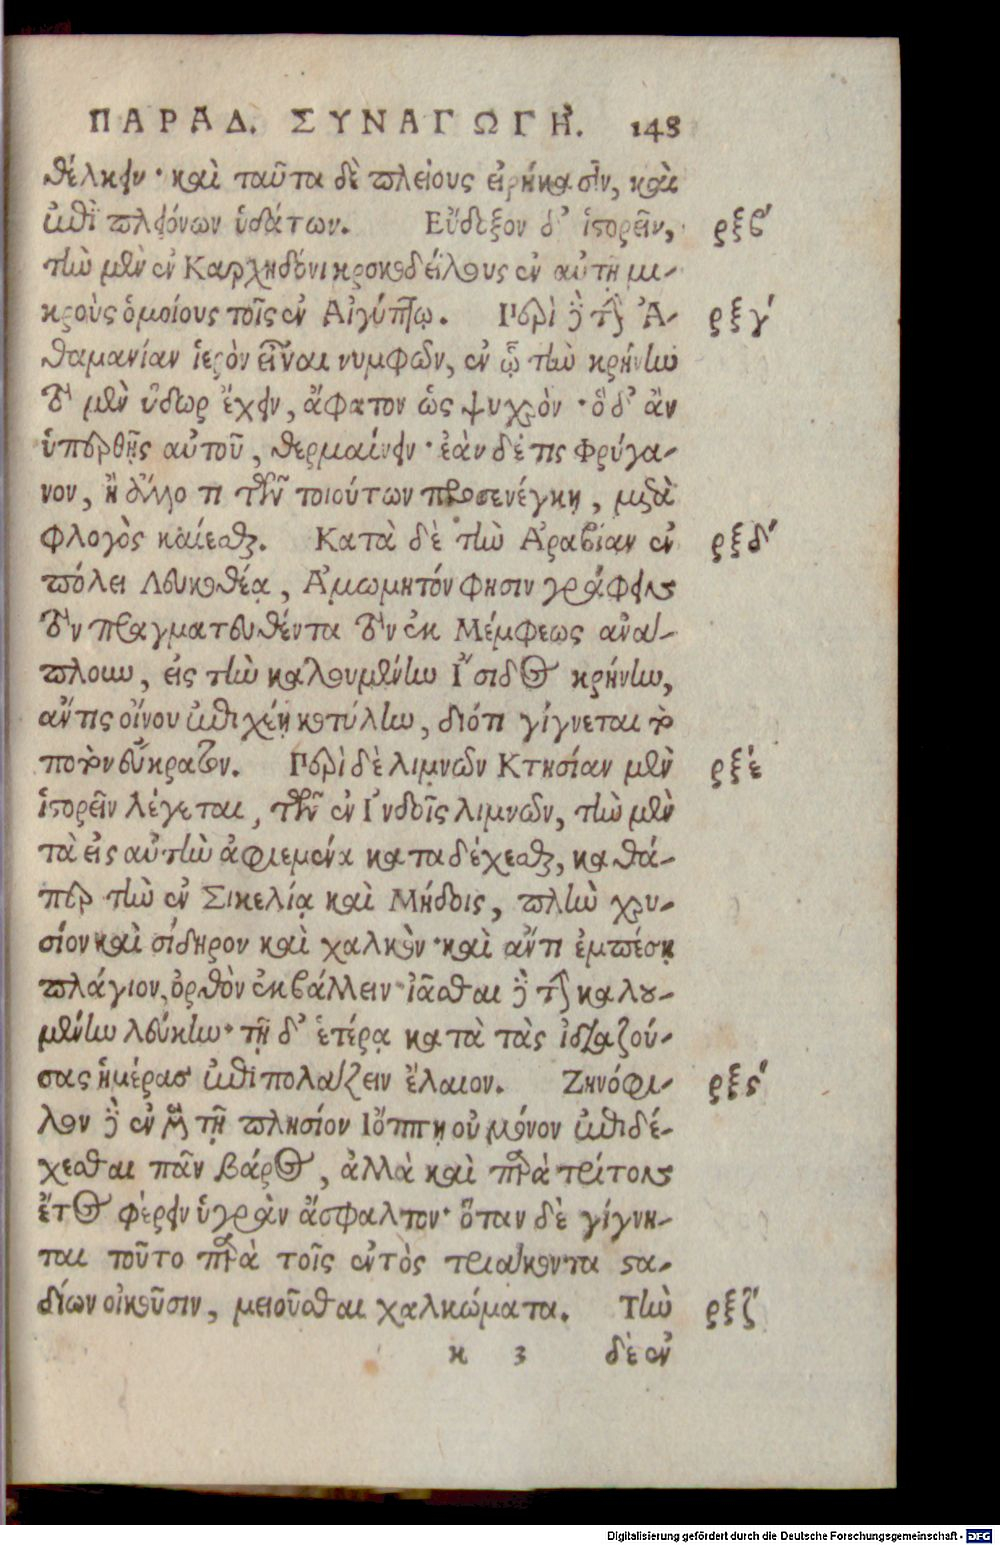 ΠΑΡΑΔ. ΣΥΝΑΓΩΓΗ. 148
θέλκειν· καὶ ταῦτα δὲ πλείους εἰρήκασιν, καὶ
ἐπὶ πλειόνων ὑδάτων. Εὔδεξον δ' ἱστορεῖν, ρξβ'
τὴν μὲν ἐν Καρχηδόνι κροκοδείλους ἐν αὐτῇ μι-
κροὺς ὁμοίους τοῖς ἐν Αἰγύπτῳ. Περὶ δὲ τὴν Ἀ- ρξγ'
θαμανίαν ἱερὸν εἶναι νυμφῶν, ἐν ᾧ τὴν κρήνην
τὸ μὲν ὕδωρ ἔχειν, ἄφατον ὡς ψυχρὸν· ὃ δ' ἂν
ὑπερθῇς αὐτοῦ, θερμαίνειν· ἐὰν δέ τις φρύγα-
νον, ἢ ἄλλο τι τῶν τοιούτων προσενέγκῃ, μετὰ
φλογὸς καίεσθαι. Κατὰ δὲ τὴν Ἀραβίαν ἐν ρξδ'
πόλει Λευκοθέᾳ, Ἀμωμητόν φησιν γράφειν
τὸν πραγματευθέντα τὸν ἐκ Μέμφεως ἀνά-
πλουν, εἰς τὴν καλουμένην Ἴσιδος κρήνην,
ἄν τις οἴνου ἐπιχέῃ κοτύλην, διότι γίγνεται τὸ
ποτὸν εὔκρατον. Περὶ δὲ λιμνῶν Κτησίαν μὲν ρξέ
ἱστορεῖν λέγεται, τῶν ἐν Ἰνδοῖς λιμνῶν, τὴν μὲν
τὰ εἰς αὐτὴν ἀφιεμένα καταδέχεσθαι, καθά-
περ τὴν ἐν Σικελίᾳ καὶ Μήδοις, πλὴν χρυ-
σίον καὶ σίδηρον καὶ χαλκὸν· καὶ ἄν τι ἐμπέσῃ
πλάγιον, ὀρθὸν ἐκβάλλειν· ἰᾶσθαι δὲ τὴν καλου-
μένην λεύκην· τῇ δ' ἑτέρᾳ κατὰ τὰς εὐδιαζού-
σας ἡμέρας ἐπιπολάζειν ἔλαιον. Ζηνόφι- ρξς'
λον δὲ ἐν μὲν τῇ πλησίον Ἰόππῃ οὐ μόνον ἐπιδέ-
χεσθαι πᾶν βάρος, ἀλλὰ καὶ παρὰ τρίτον
ἔτος φέρειν ὑγρὰν ἄσφαλτον· ὅταν δὲ γίγνη-
ται τοῦτο παρὰ τοῖς ἐντὸς τριάκοντα στα-
δίων οἰκοῦσιν, μειοῦσθαι χαλκώματα. Τὴν ρξζ'
κ 3 δὲ ἐν
Digitalisierung gefördert durch die Deutsche Forschungsgemeinschaft - DFG